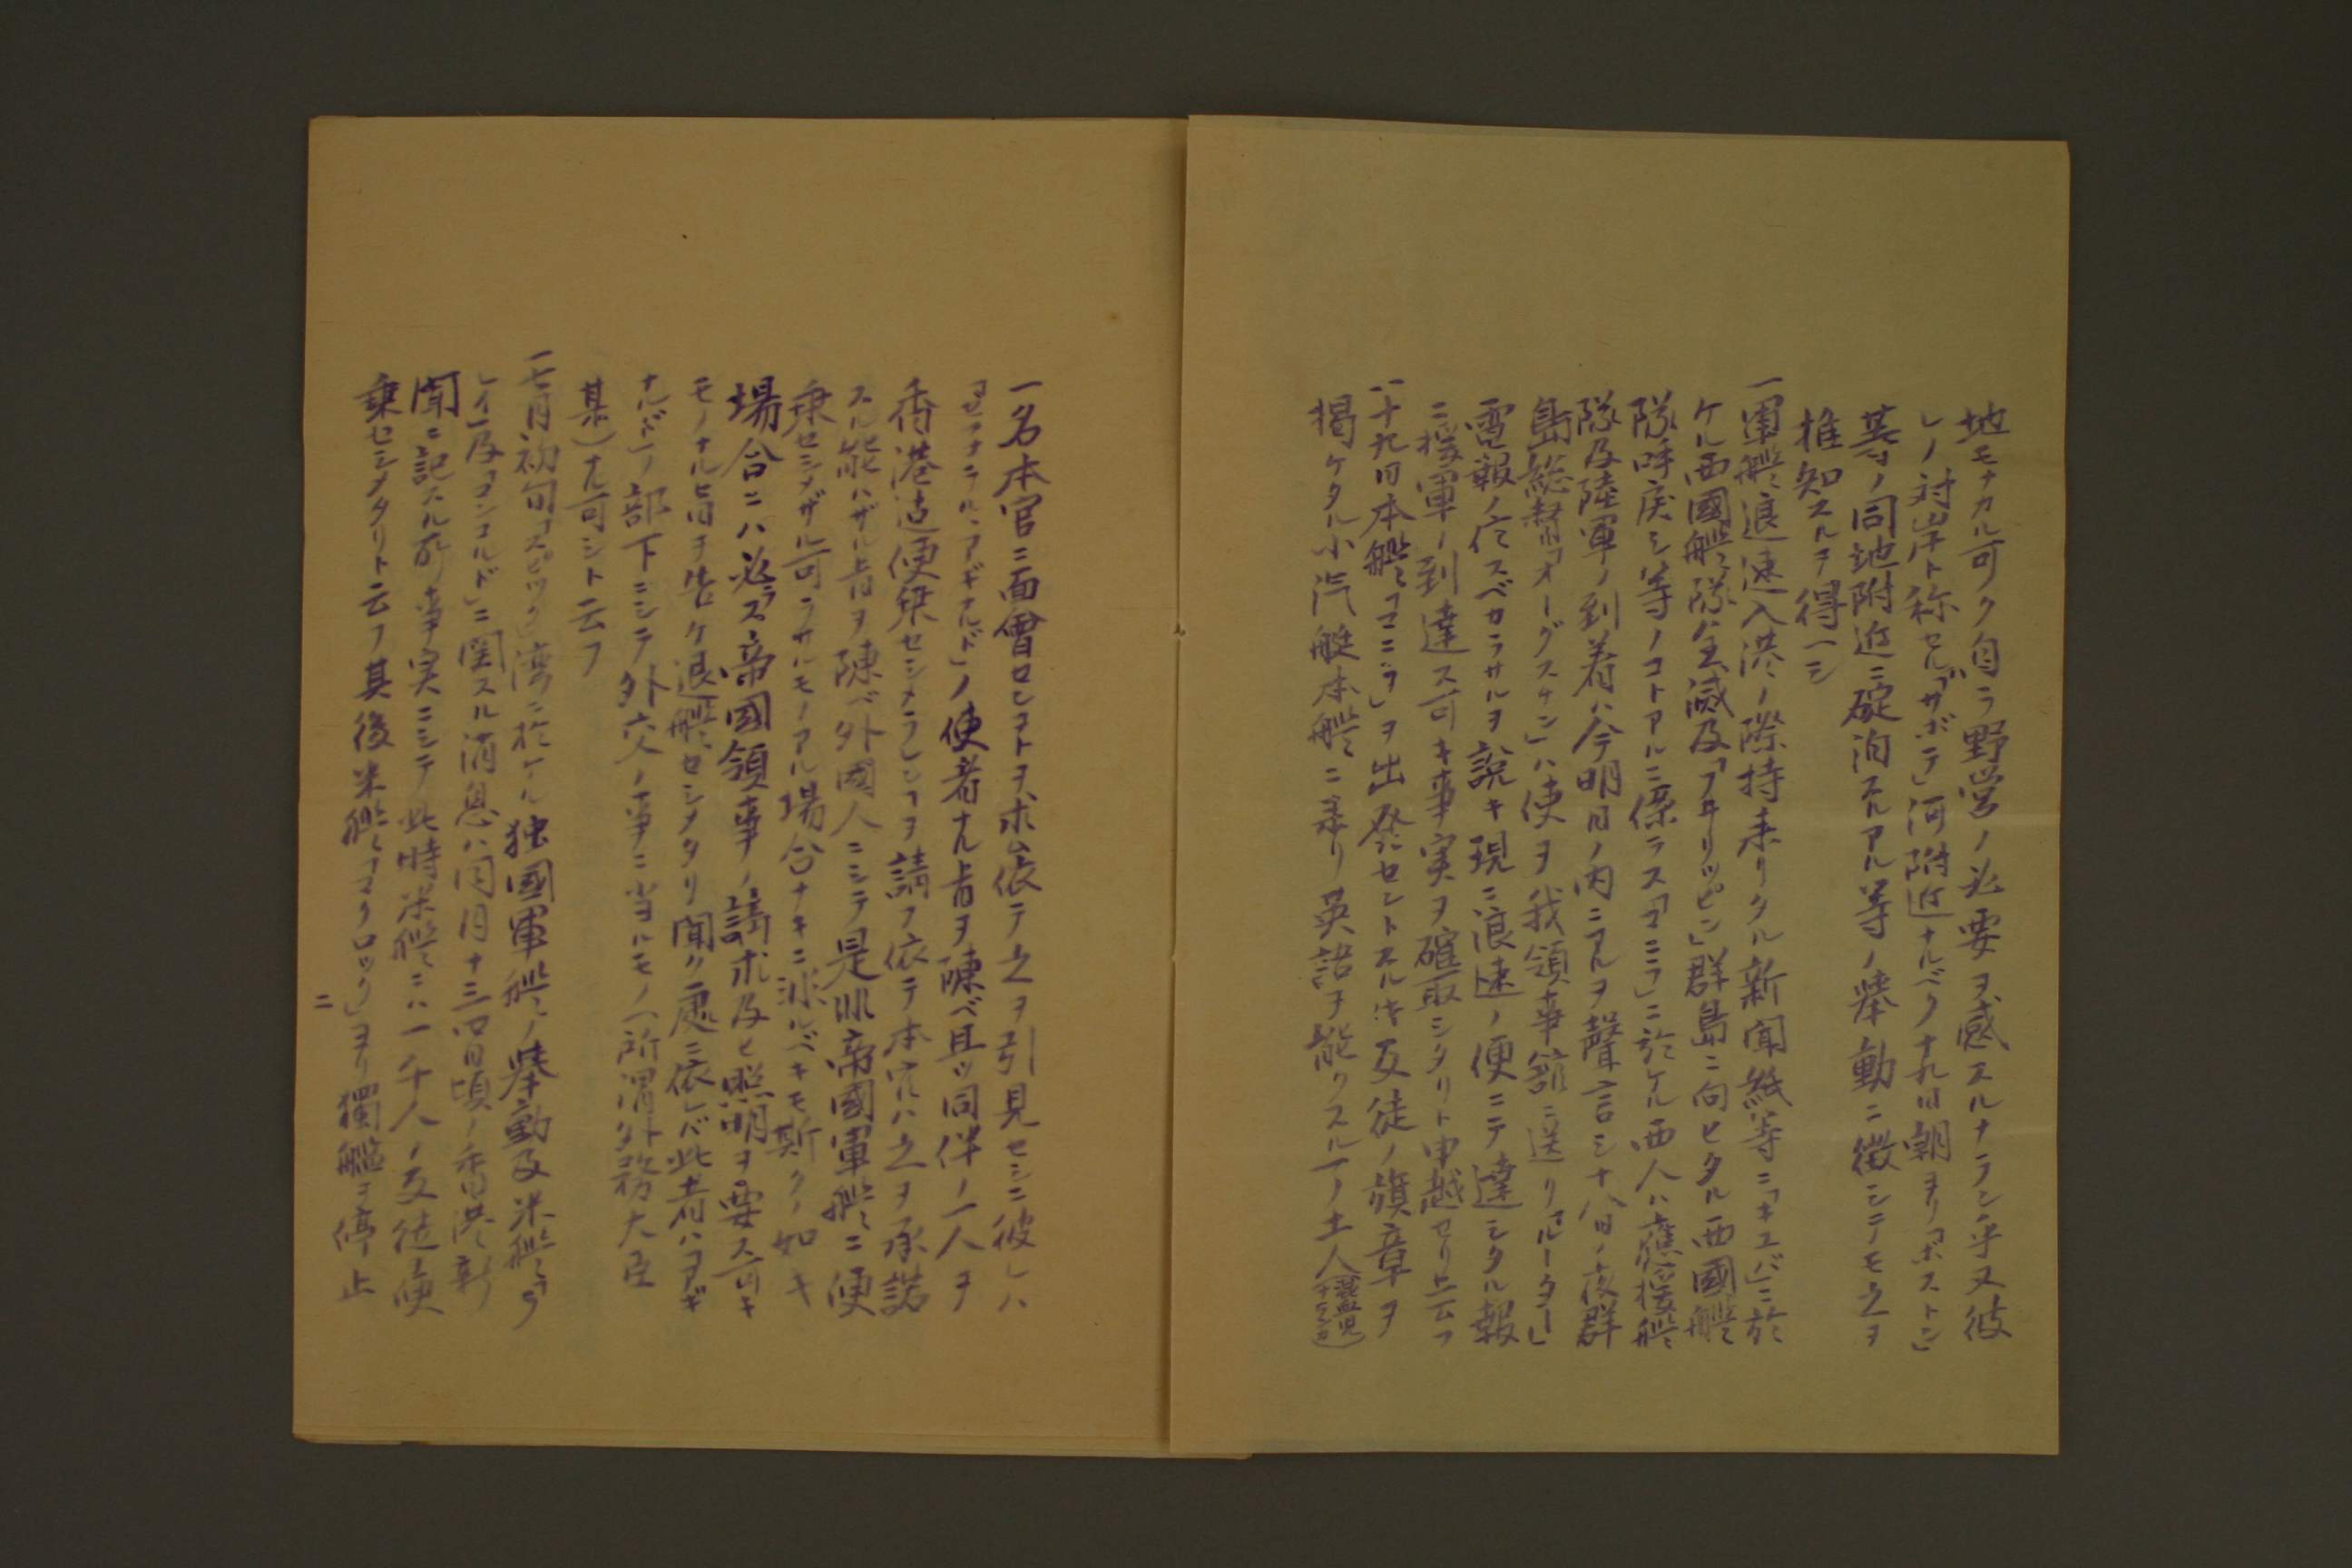 地モナカル可ク自ラ野営ノ必要ヲ感スルナラン乎又彼
レノ対岸ト称セル「サボテ」河附近ナルベク十九日朝ヨリ「ボストン」
等ノ同地附近ニ碇泊スルアル等ノ挙動ニ徴シテモ之ヲ
推知スルヲ得ヘシ
一軍艦浪速入港ノ際持来リタル新聞紙等ニ「キユバ」ニ於
ケル西國艦隊全滅及「フヰリッピン」群島ニ向ヒタル西國艦
隊呼戻シ等ノコトアルニ係ラス「マニラ」ニ於ケル西人ハ應援艦
隊及陸軍ノ到着ハ今明日ノ内ニアルヲ聲言シ十八日ノ夜群
島総督「オーグスチン」ハ使ヲ我領事舘ニ送リ「ルーター」
電報ノ信スベカラサルヲ説キ現ニ浪速ノ便ニテ達シタル報
ニ援軍ノ到達ス可キ事実ヲ確取シタリト申越セリト云フ
一二十九日本艦「マニラ」ヲ出発セントスルトキ反徒ノ旗章ヲ
掲ケタル小汽艇本艦ニ来リ英語ヲ能クスル一ノ土人(混血児)
一名本官ニ面會センコトヲ求ム依テ之ヲ引見セシニ彼レハ
「アギナルド」ノ使者ナル旨ヲ陳ベ且ツ同伴ノ一人ヲ
香港迄便乗セシメランコヲ請フ依テ本官ハ之ヲ承諾
スル能ハザル旨ヲ陳ベ外國人ニシテ是非帝國軍艦ニ便
乗セシメザル可ラサルモノアル場合ナキニ非ルベキモ斯クノ如キ
場合ニハ必ラズ帝國領事ノ請求及ヒ照明ヲ要ス可キ
モノナル旨ヲ告ケ退艦セシメタリ聞ク處ニ依レバ此者ハ「アギ
ナルド」ノ部下ニシテ外交ノ事ニ当ルモノ(所謂外務大臣
某)ナル可シト云フ
一七月初旬「スビック」湾ニ於ケル独國軍艦ノ挙動及米艦「ラ
レイ」及「コンコルド」ニ関スル消息ハ同月十三四日頃ノ香港新
聞ニ記スル所事実ニシテ此時米艦ニハ一千人ノ反徒ヲ便
乗セシメタリト云フ其後米艦「マクロック」ヨリ獨艦ヲ停止
ニ